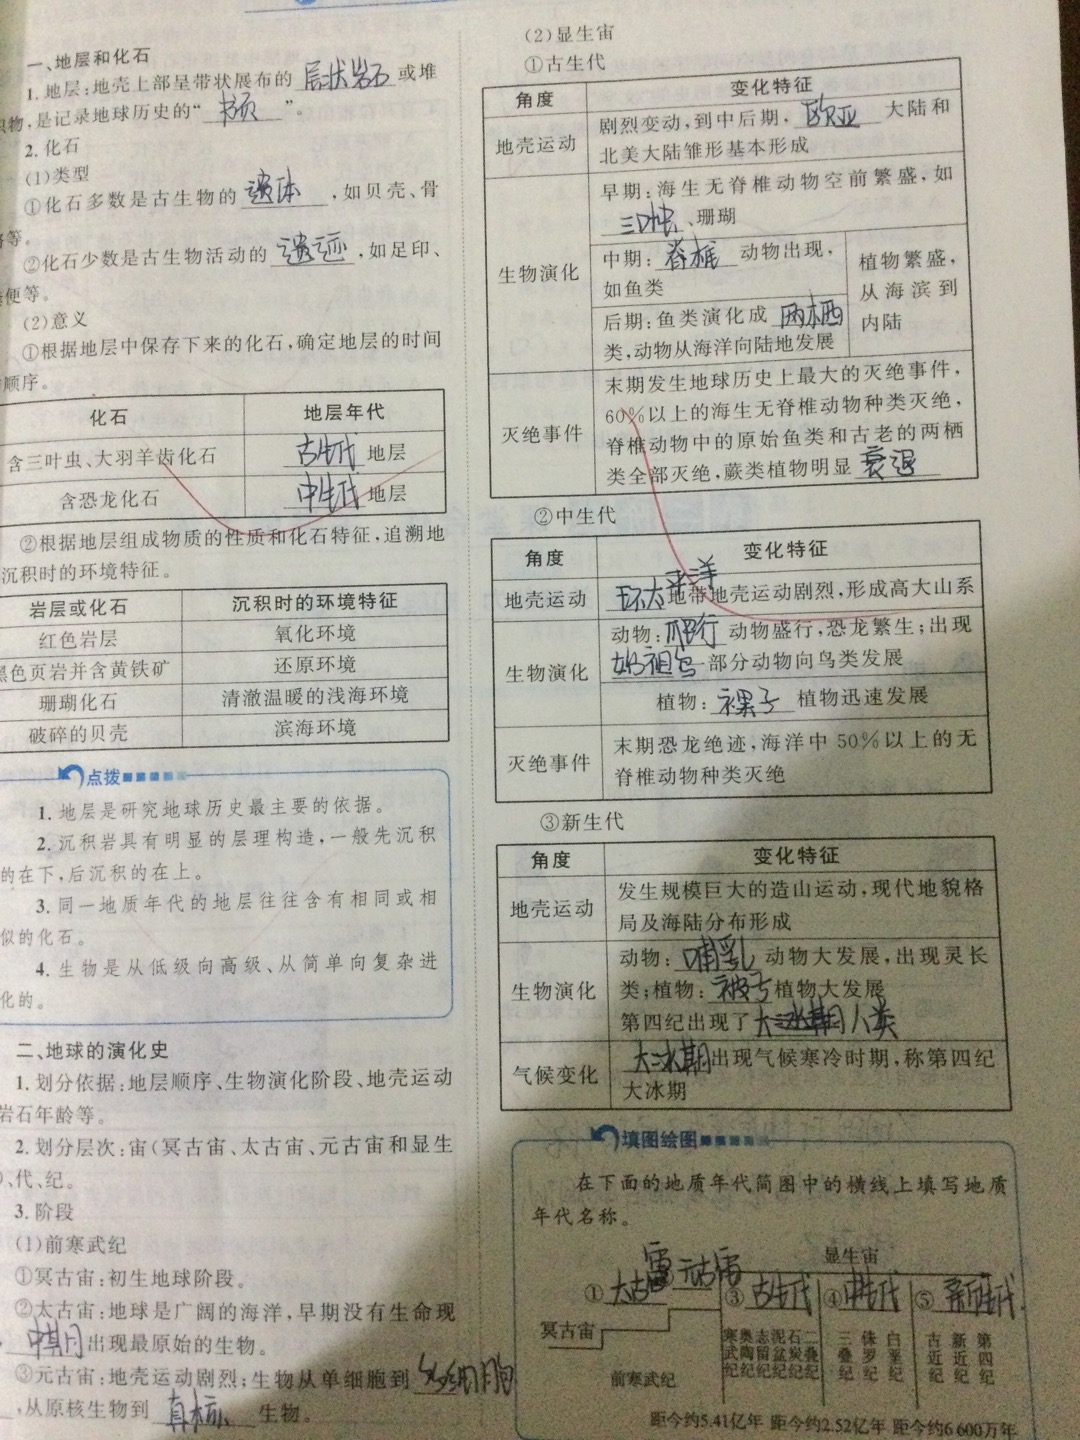 一、地层和化石
1.地层:地壳上部呈带状展布的 层状岩石 或堆
积物,是记录地球历史的“ 书页 ”。
2.化石
(1)类型
①化石多数是古生物的 遗体 ,如贝壳、骨
骼等。
②化石少数是古生物活动的 遗迹 ,如足印、
粪便等。
(2)意义
①根据地层中保存下来的化石,确定地层的时间
顺序。
化石 地层年代
含三叶虫、大羽羊齿化石 古生代 地层
含恐龙化石 中生代 地层
②根据地层组成物质的性质和化石特征,追溯地
沉积时的环境特征。
岩层或化石 沉积时的环境特征
红色岩层 氧化环境
黑色页岩并含黄铁矿 还原环境
珊瑚化石 清澈温暖的浅海环境
破碎的贝壳 滨海环境
点拨
1.地层是研究地球历史最主要的依据。
2.沉积岩具有明显的层理构造,一般先沉积
的在下,后沉积的在上。
3.同一地质年代的地层往往含有相同或相
似的化石。
4.生物是从低级向高级、从简单向复杂进
化的。
二、地球的演化史
1.划分依据:地层顺序、生物演化阶段、地壳运动
岩石年龄等。
2.划分层次:宙(冥古宙、太古宙、元古宙和显生
)、代、纪。
3.阶段
(1)前寒武纪
①冥古宙:初生地球阶段。
②太古宙:地球是广阔的海洋,早期没有生命现
, 中期 出现最原始的生物。
③元古宙:地壳运动剧烈;生物从单细胞到 多细胞
,从原核生物到 真核 生物。
(2)显生宙
①古生代
角度 变化特征
地壳运动 剧烈变动,到中后期, 欧亚 大陆和
北美大陆雏形基本形成
生物演化 早期:海生无脊椎动物空前繁盛,如
三叶虫、珊瑚
中期: 脊椎 动物出现,
如鱼类
后期:鱼类演化成 两栖
类,动物从海洋向陆地发展
植物繁盛,
从海滨到
内陆
灭绝事件 末期发生地球历史上最大的灭绝事件,
60%以上的海生无脊椎动物种类灭绝,
脊椎动物中的原始鱼类和古老的两栖
类全部灭绝,蕨类植物明显 衰退
②中生代
角度 变化特征
地壳运动 环太平洋地带地壳运动剧烈,形成高大山系
生物演化 动物: 爬行 动物盛行,恐龙繁生;出现
始祖鸟 一部分动物向鸟类发展
植物: 裸子 植物迅速发展
灭绝事件 末期恐龙绝迹,海洋中50%以上的无
脊椎动物种类灭绝
③新生代
角度 变化特征
地壳运动 发生规模巨大的造山运动,现代地貌格
局及海陆分布形成
生物演化 动物: 哺乳 动物大发展,出现灵长
类;植物: 被子 植物大发展
第四纪出现了 大冰期 人类
气候变化 大冰期 出现气候寒冷时期,称第四纪
大冰期
填图绘图
在下面的地质年代简图中的横线上填写地质
年代名称。
显生宙
① 太古宙 元古宙 ③ 古生代 ④ 中生代 ⑤ 新生代
冥古宙
前寒武纪
寒武纪 奥陶纪 志留纪 泥盆纪 石炭纪 二叠纪 三叠纪 侏罗纪 白垩纪 古近纪 新近纪 第四纪
距今约5.41亿年 距今约2.52亿年 距今约6 600万年